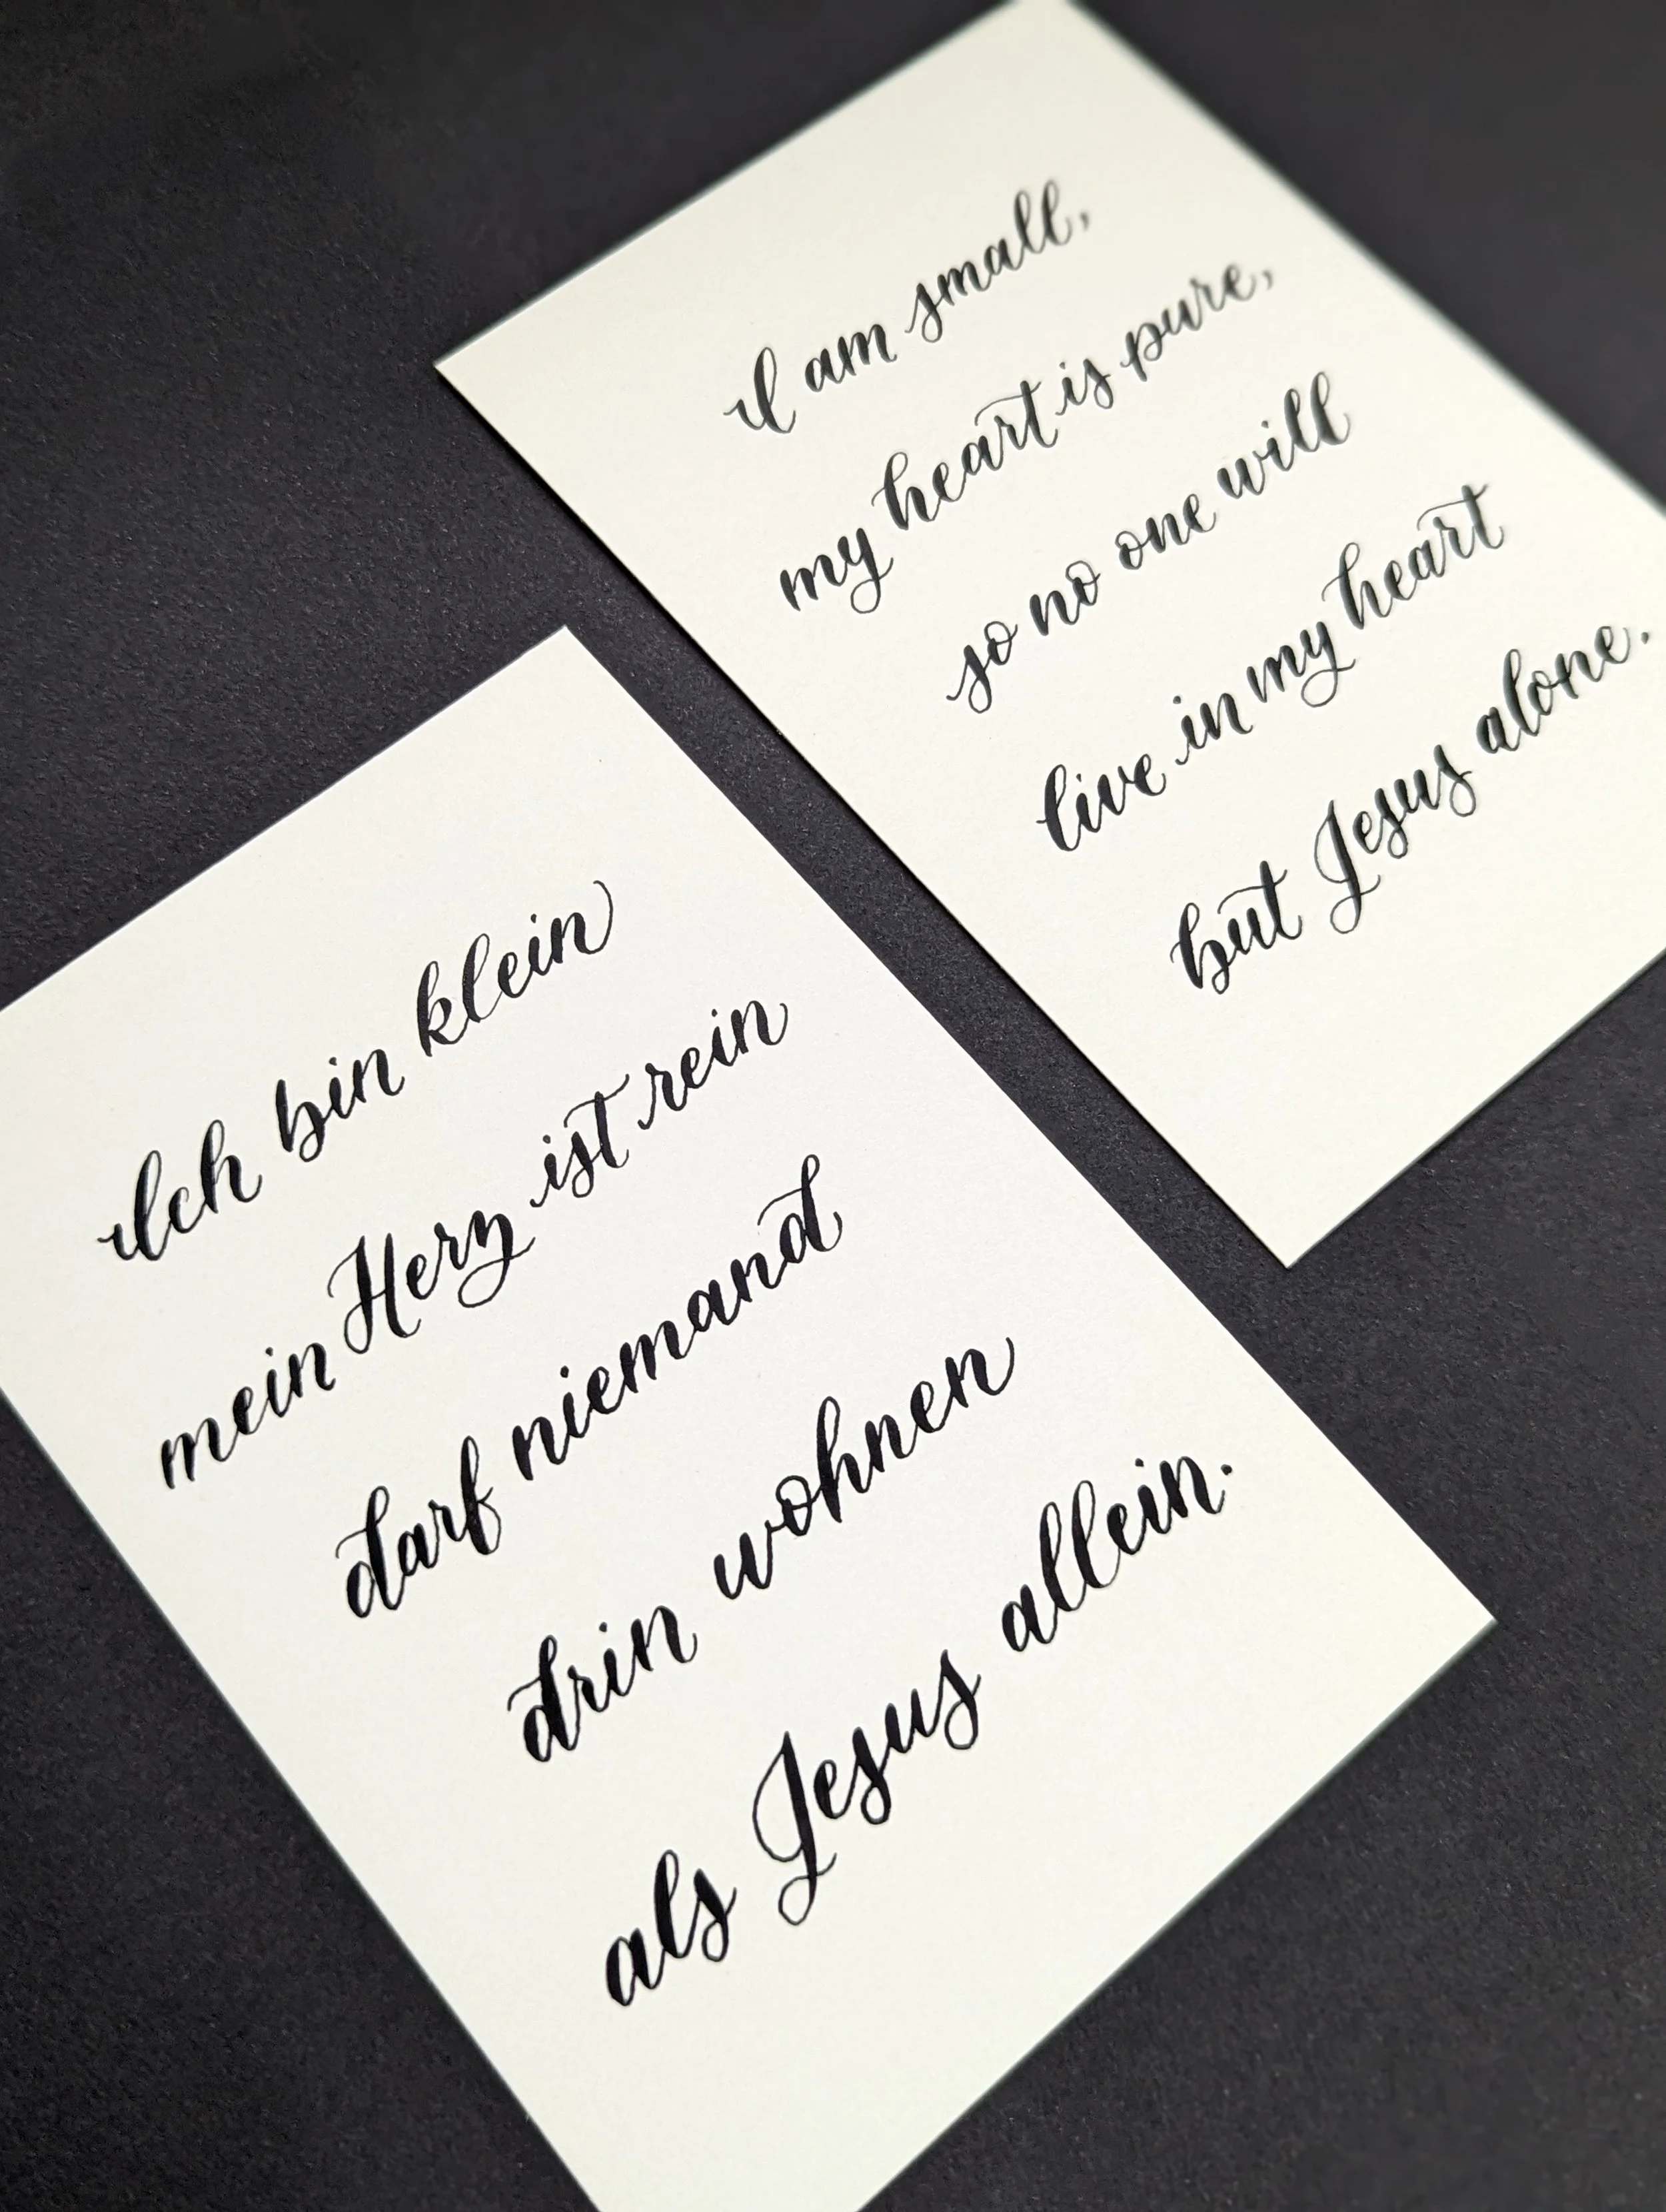 I am small,
my heart is pure,
so no one will
live in my heart
but Jesus alone.
Ich bin klein
mein Herz ist rein
darf niemand
drin wohnen
als Jesus allein.